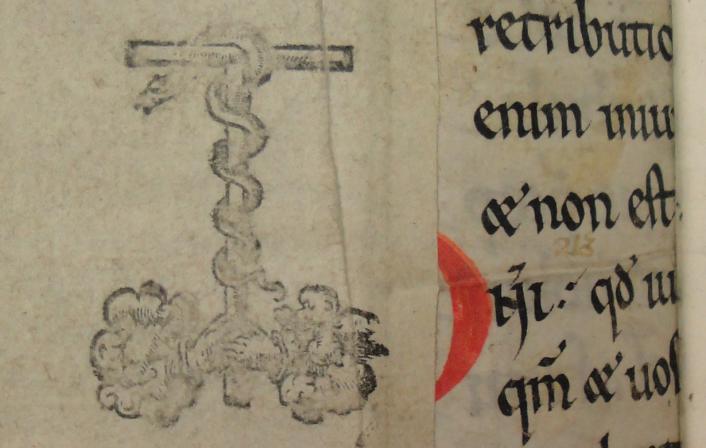 retributio
enim iniu
& non est
213
qd̕ ui
qm̄ & uos